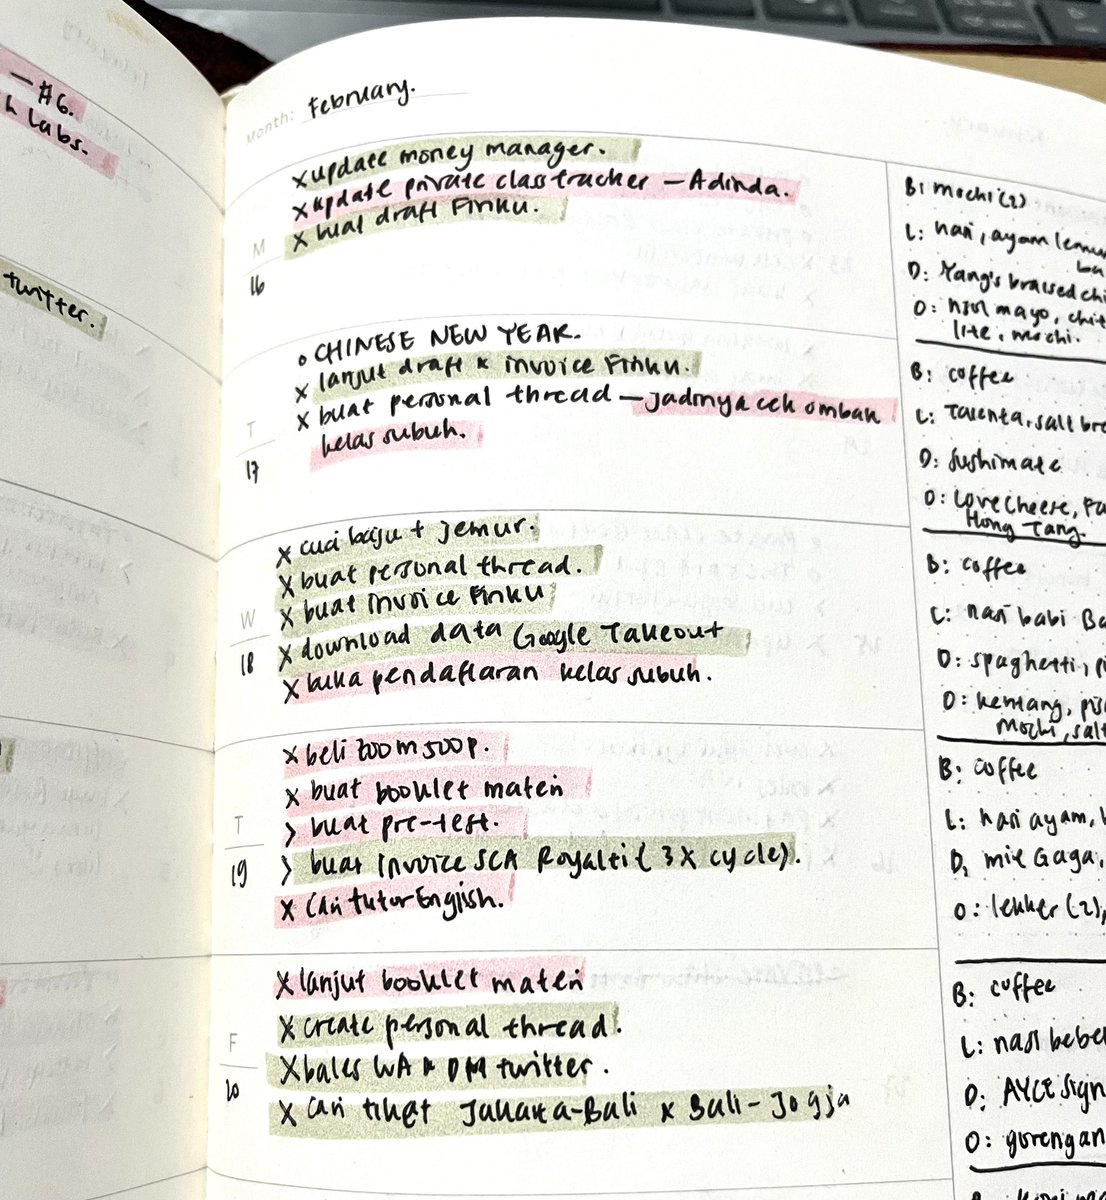 — #6.
h Labs.
twitter.
Month: February.
M
16
x update money manager.
x update private class tracker — Adinda.
x bual draft Finku.
T
17
o CHINESE NEW YEAR.
x lanjut draft & invoice Finku.
x buat personal thread — jadinya cek ombak
kelas subuh.
W
18
x cuci baju + jemur.
x buat personal thread.
x buat invoice Finku
x download data Google Takeout
x buka pendaftaran kelas subuh.
T
19
x beli zoom 500p.
x buat booklet materi
> buat pre-test.
> buat invoice SCA Royalti (3x cycle).
x cari tutor English.
F
20
x lanjut booklet materi
x create personal thread.
x bales WA & DM twitter.
x cari tiket Jakarta-Bali x Bali-Jogja
B: mochi (2)
L: nasi, ayam
D: Yang's braised
O: mayo,
lite, mochi.
B: coffee
L: Talenta, salt
D: Sushimate
O: Love Cheese,
Hong Tang.
B: coffee
L: nasi babi
D: spaghetti,
O: kentang,
mochi, salt
B: coffee
L: nasi ayam,
D: mie Gaga,
O: lekker (2),
B: coffee
L: nasi
D: AYCE
O: gorengan